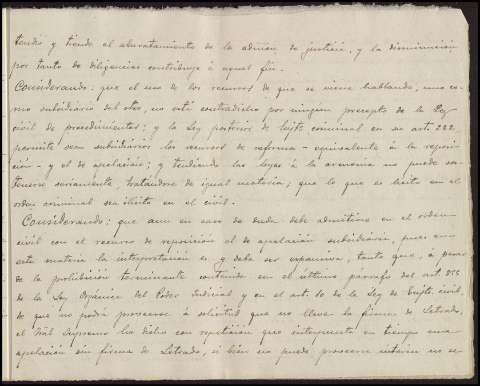 tendió y tiende el abaratamiento de la admon de justicia, y la disminución
por tanto de diligencias contribuye á aquel fin.
Considerando: que el uso de los recursos de que se viene hablando, uno co-
mo subsidiario del otro, no está contradicho por ningún precepto de la Ley
civil de procedimientos; y la Ley posterior de Enjto criminal en su art. 222,
permite sean subsidiarios los recursos de reforma - equivalente á la reposi-
ción - y el de apelación; y tendiendo las leyes á la armonía no puede sos-
tenerse seriamente, tratándose de igual materia; que lo que es lícito en el
orden criminal sea ilícito en el civil.
Considerando: que aun en caso de duda debe admitirse en el orden
civil con el recurso de reposición el de apelación subsidiaria, pues en
esta materia la interpretación es y debe ser expansiva, tanto que, á pesar
de la prohibición terminante contenida en el último párrafo del art. 855
de la Ley Orgánica del Poder Judicial y en el art. 10 de la Ley de Enjto civil,
de que no podrá proveerse á solicitud que no lleve la firma de Letrado,
el Tribl Supremo ha dicho con repetición que interpuesta en tiempo una
apelación sin firma de Letrado, si bien no puede proveerse interin no se